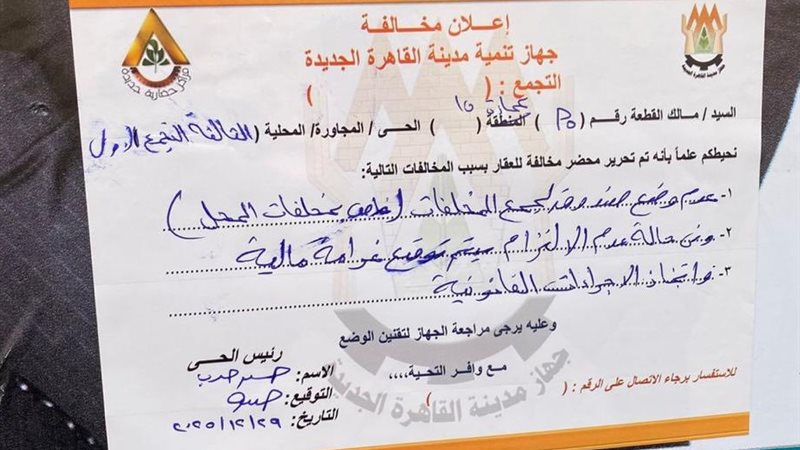 إعلان مخالفة
جهاز تنمية مدينة القاهرة الجديدة
التجمع : ( )
مركز حضارية جديدة
جهاز مدينة القاهرة الجديدة
السيد / مالك القطعة رقم ( ) المنطقة ( عمارة ١٥ ) الحى / المجاورة/ المحلية ( الثالثة التجمع الاول
نحيطكم علماً بأنه تم تحرير محضر مخالفة للعقار بسبب المخالفات التالية:
١- عدم وضع صندوق لجمع المخلفات ( خاص بمخلفات المحل )
٢- وفى حالة عدم الالتزام سيتم توقيع غرامة مالية
٣- واتخاذ الاجراءات القانونية
وعليه يرجى مراجعة الجهاز لتقنين الوضع
مع وافر التحية,,,,
رئيس الحى
الاسم:
التوقيع:
التاريخ: ٢٠٢٥/١٢/٢٩
للاستفسار برجاء الاتصال على الرقم : ( )
جهاز مدينة القاهرة الجديدة